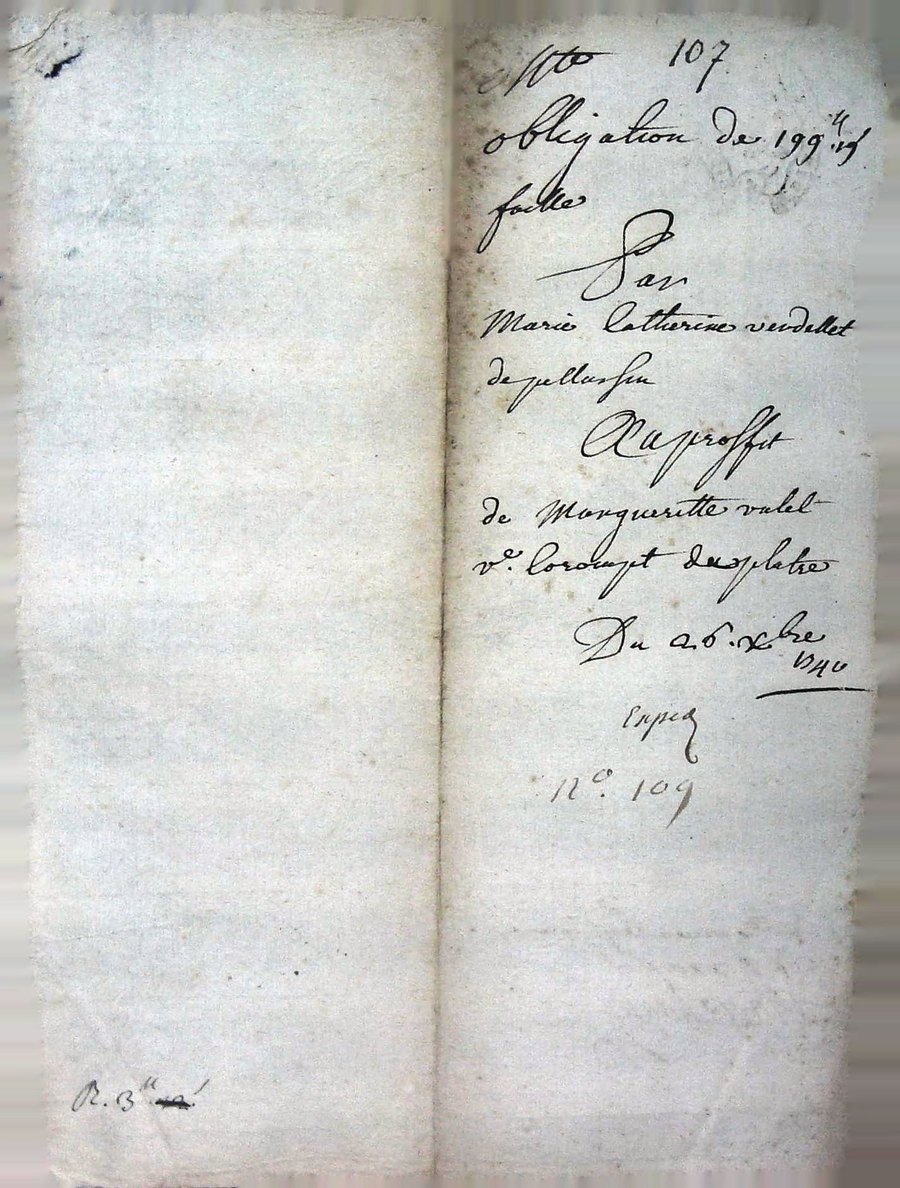 107
obligation de 199ˡˡ
faitte
Par
Marie Catherine verdellet
de pellussin
Au proffit
de Margueritte valet
vᵉ. Corompt du platre
Du 26. xbre
1740
Exped
N°. 109
R. 3ˡˡ